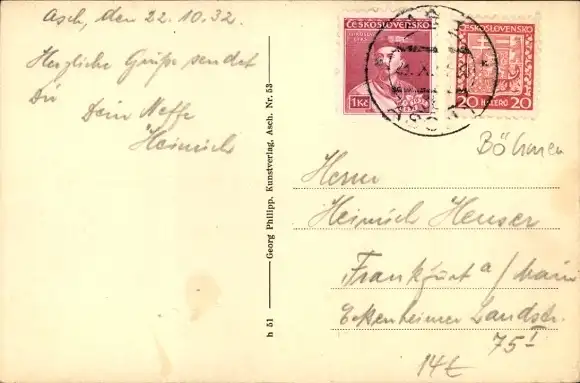 Asch, den 22.10.32.
Herzliche Grüße sendet
Dir
Dein Neffe
Heinrich
Georg Philipp, Kunstverlag, Asch. Nr. 53
h 51
ČESKOSLOVENSKO
1Kč
ČESKOSLOVENSKO
20 HALÉŘŮ 20
Böhmen
Herrn
Heinrich Heuser
Frankfurt a/Main
Eckenheimer Landstr.
75 I